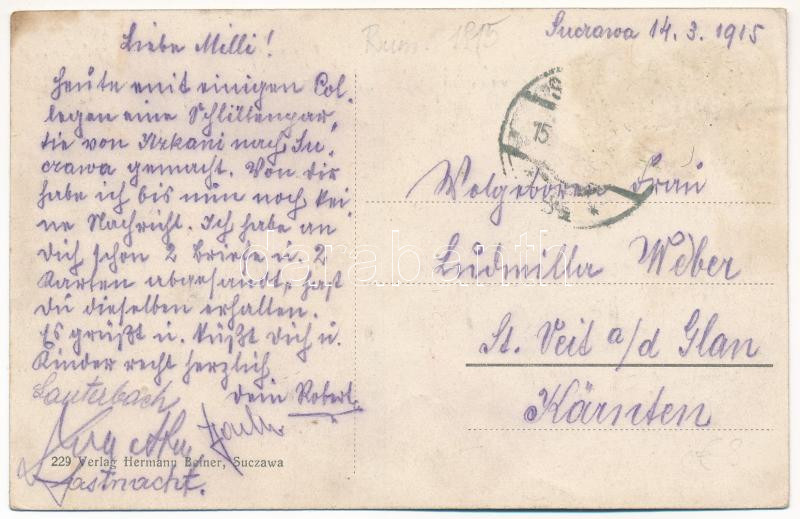 Suczawa 14. 3. 1915
Liebe Milli!
Heute mit einigen Col-
legen eine Schlittenpar-
tie von Itzkani nach Su-
czawa gemacht. Von dir
habe ich bis nun noch kei-
ne Nachricht. Ich habe an
dich schon 2 Briefe u. 2
Karten abgesandt, hast
du dieselben erhalten.
Es grüßt u. küßt Dich u.
Kinder recht herzlich
dein Robert.
Lauterbach
Fastnacht.
229 Verlag Hermann Beiner, Suczawa
1915
15
Wolgeborne Frau
Ludmilla Weber
St. Veit a/d Glan
Kärnten
darabanth